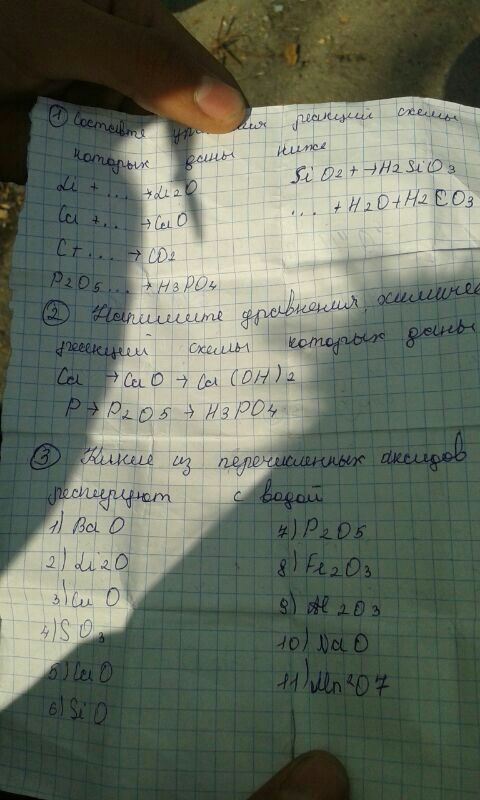 1 Составте уравнения реакций схемы
которых даны ниже
Li + ... → Li2O
Ca + ... → CaO
C + ... → CO2
P2O5 ... → H3PO4
SiO2 + → H2SiO3
... + H2O + H2CO3
2 Напишите уравнения, химичес
реакций схемы которых даны
Ca → CaO → Ca(OH)2
P → P2O5 → H3PO4
3 Какие из перечисленных оксидов
с водой
1) BaO
2) Li2O
3) CuO
4) SO3
5) CaO
6) SiO
7) P2O5
8) Fe2O3
9) Al2O3
10) NaO
11) Mn2O7